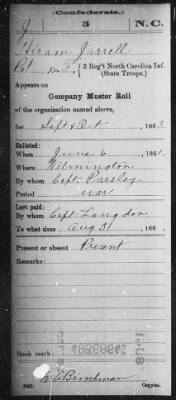 (Confederate.)
J 3 N.C.
Hiram Jarrell
Pvt , Co. F, 3 Reg't North Carolina Inf.
(State Troops.)
Appears on
Company Muster Roll
of the organization named above,
for Sept & Oct , 1863.
Enlisted:
When June 6 , 1861.
Where Wilmington
By whom Capt. Parsley
Period war
Last paid:
By whom Capt. Langdon
To what time Aug 31 , 186
Present or absent Present
Remarks:
Book mark:
Copyist.